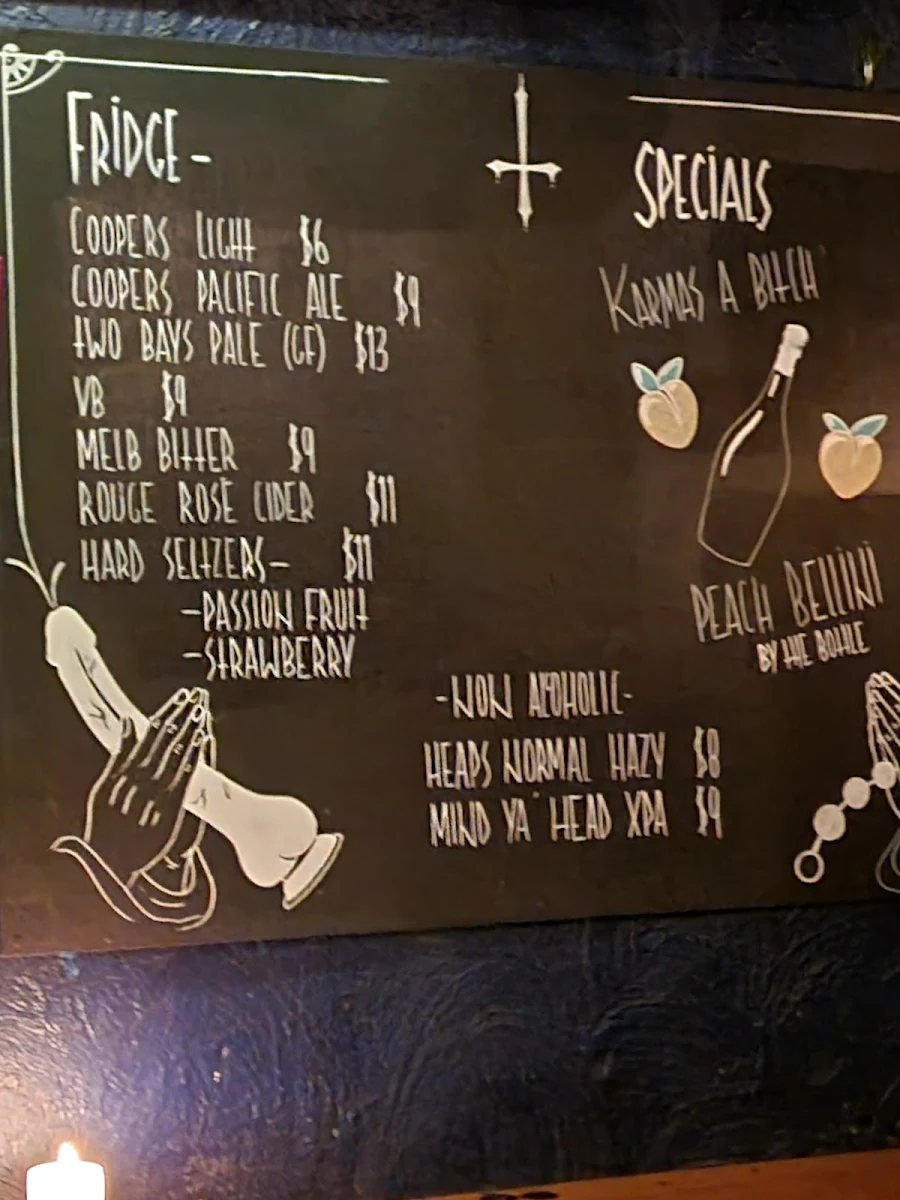 FRIDGE -
COOPERS LIGHT $6
COOPERS PACIFIC ALE $9
TWO BAYS PALE (GF) $13
VB $9
MELB BITTER $9
ROUGE ROSÉ CIDER $11
HARD SELTZERS- $11
-PASSION FRUIT
-STRAWBERRY
SPECIALS
KARMAS A BITCH
PEACH BELLINI
BY THE BOTTLE
-NON ALCOHOLIC-
HEAPS NORMAL HAZY $8
MIND YA' HEAD XPA $9